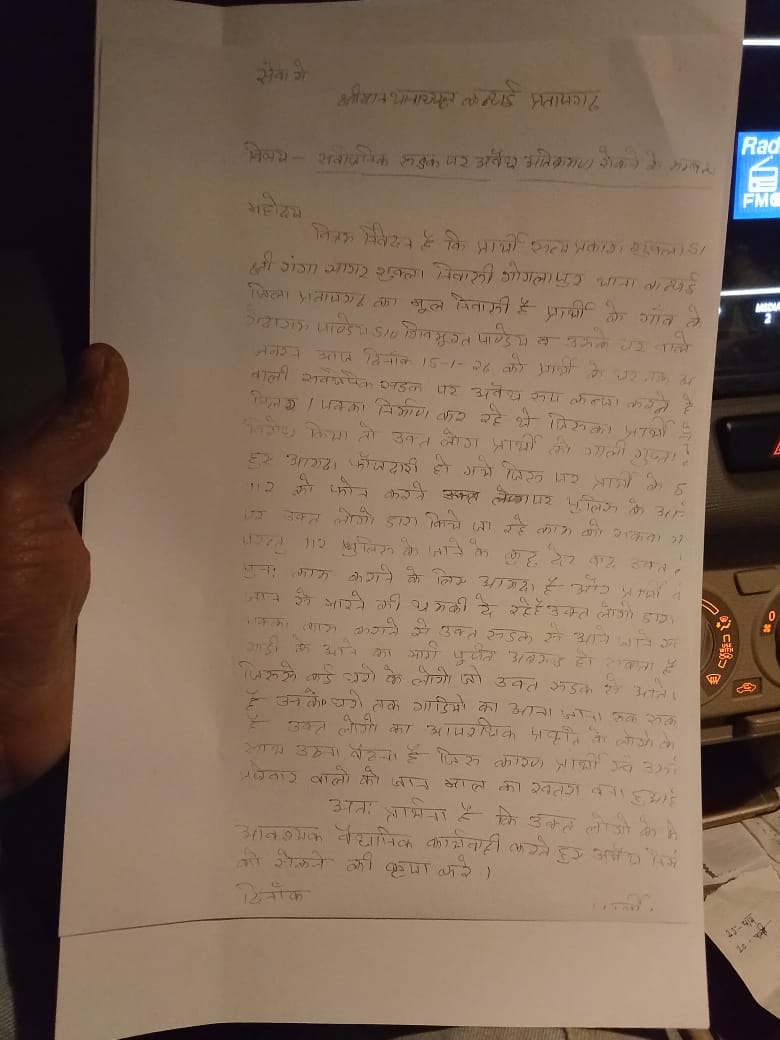 सेवा में
श्रीमान थानाध्यक्ष कन्धई प्रतापगढ़
विषय - सार्वजनिक सड़क पर अवैध अतिक्रमण रोकने के सम्बन्ध
महोदय
विनम्र निवेदन है कि प्रार्थी सत्य प्रकाश शुक्ला S/
श्री गंगा सागर शुक्ला निवासी गोगलापुर थाना कन्धई
जिला प्रतापगढ़ का मूल निवासी है प्रार्थी के गाँव के
पाण्डेय S/o शिवमूरत पाण्डेय व उनके घर वाले
आज दिनांक 15-1-26 को प्रार्थी के घर तक
वाली सार्वजनिक सड़क पर अवैध रूप कब्जा करने हे
पिलर / पक्का निर्माण कर रहे थे जिसका प्रार्थी ने
विरोध किया तो उक्त लोग प्रार्थी को गाली गुप्ता
हुए आमादा फौजदारी हो गये जिस पर प्रार्थी के
112 को फोन करने पर पुलिस के आ
पर उक्त लोगो द्वारा किये जा रहे काम को रुकवा ग
परन्तु 112 पुलिस के जाने के कुछ देर बाद उक्त
पुनः काम कराने के लिए आमादा है और प्रार्थी
जान से मारने की धमकी दे रहे हैं उक्त लोगो द्वारा
काम कराने से उक्त सड़क से आने जाने
गाडी के आने का मार्ग पूर्णतः अवरुद्ध हो सकता है
जिससे कई घरो के लोगो जो उक्त सड़क से आते
है उनके घरो तक गाडियो का आना जाना रूक सक
है उक्त लोगो का आपराधिक प्रवृति के लोगो के
साथ उठना बैठना है जिस कारण प्रार्थी एवं उसके
परिवार वालो को जान माल का खतरा बना हुआ है
अतः प्रार्थना है कि उक्त लोगो के
आवश्यक वैधानिक कार्यवाही करते हुए अवैध निर्म
को रोकने की कृपा करे ।
दिनाँक
Rad
FM
MEDIA
2
USE
WITH
0